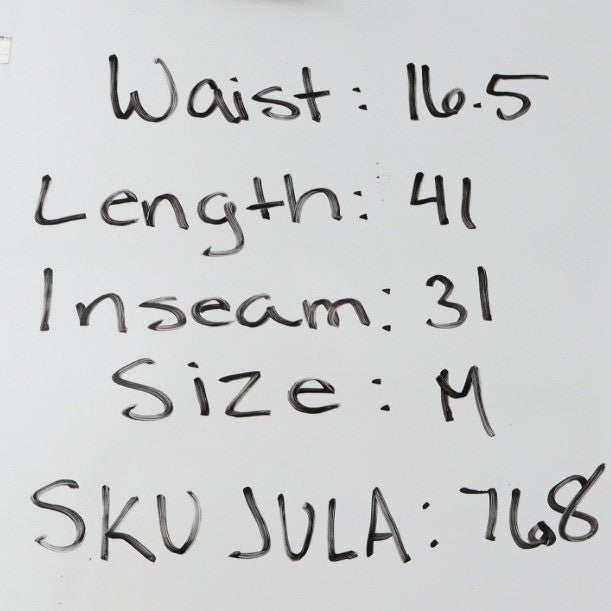 Waist: 16.5
Length: 41
Inseam: 31
Size: M
SKU JULA: 768